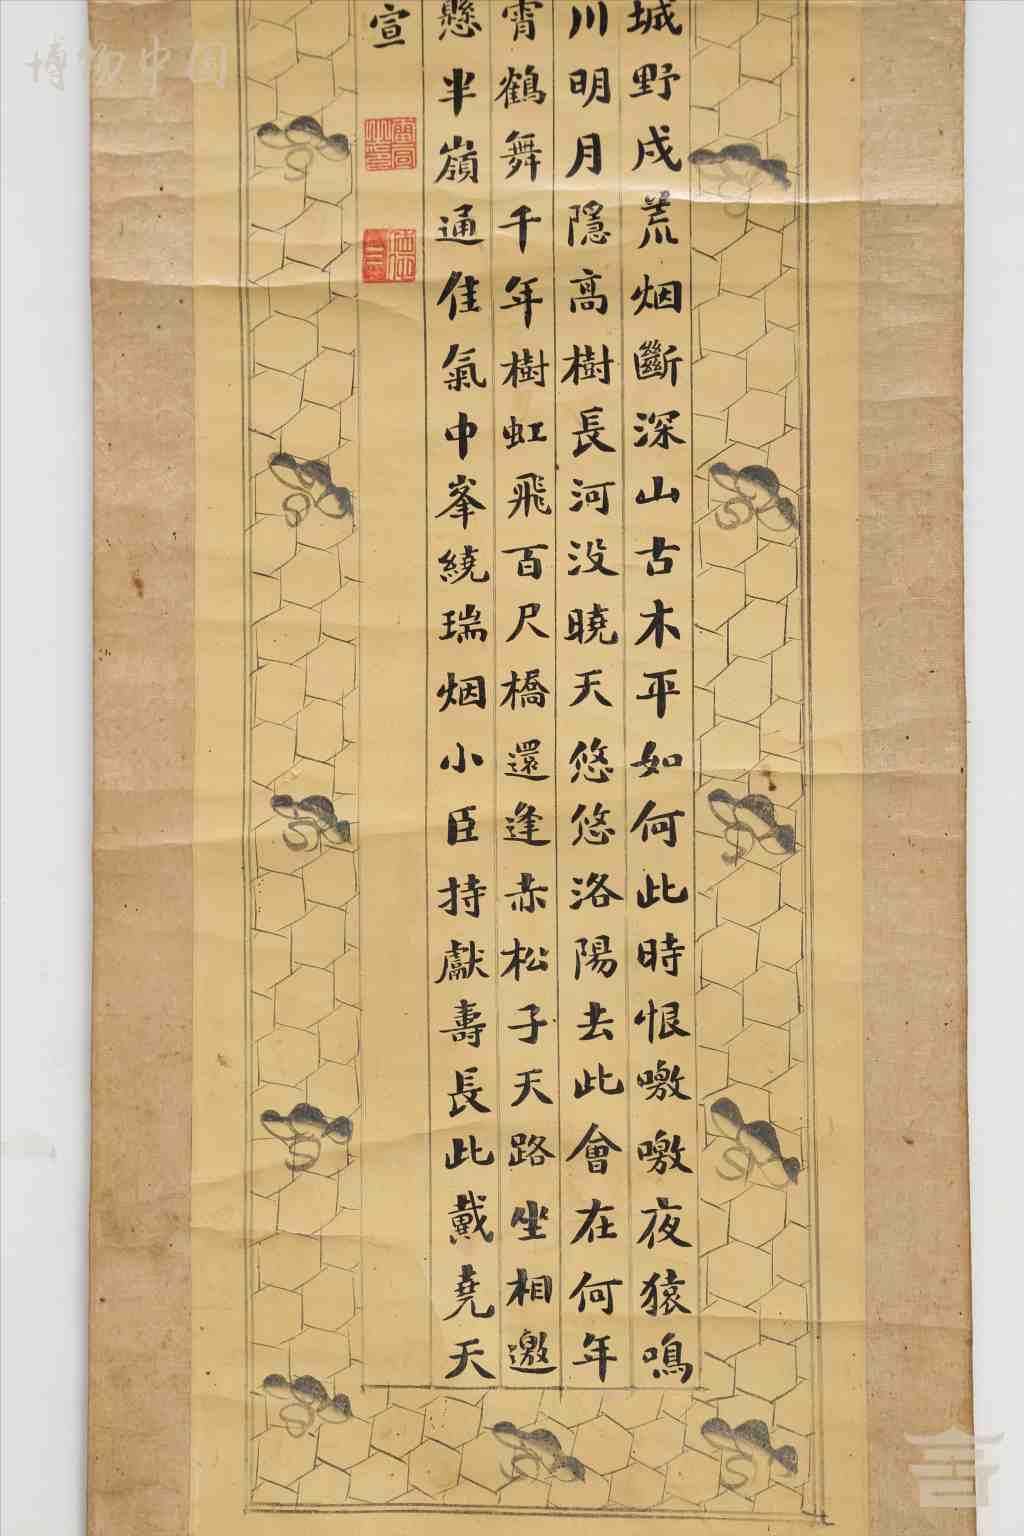 城野戍荒烟斷深山古木平如何此時恨噭噭夜猿鳴
川明月隱高樹長河没曉天悠悠洛陽去此會在何年
霄鶴舞千年樹虹飛百尺橋還逢赤松子天路坐相邀
懸半嶺通佳氣中峯繞瑞烟小臣持獻壽長此戴堯天
宣
博物中国